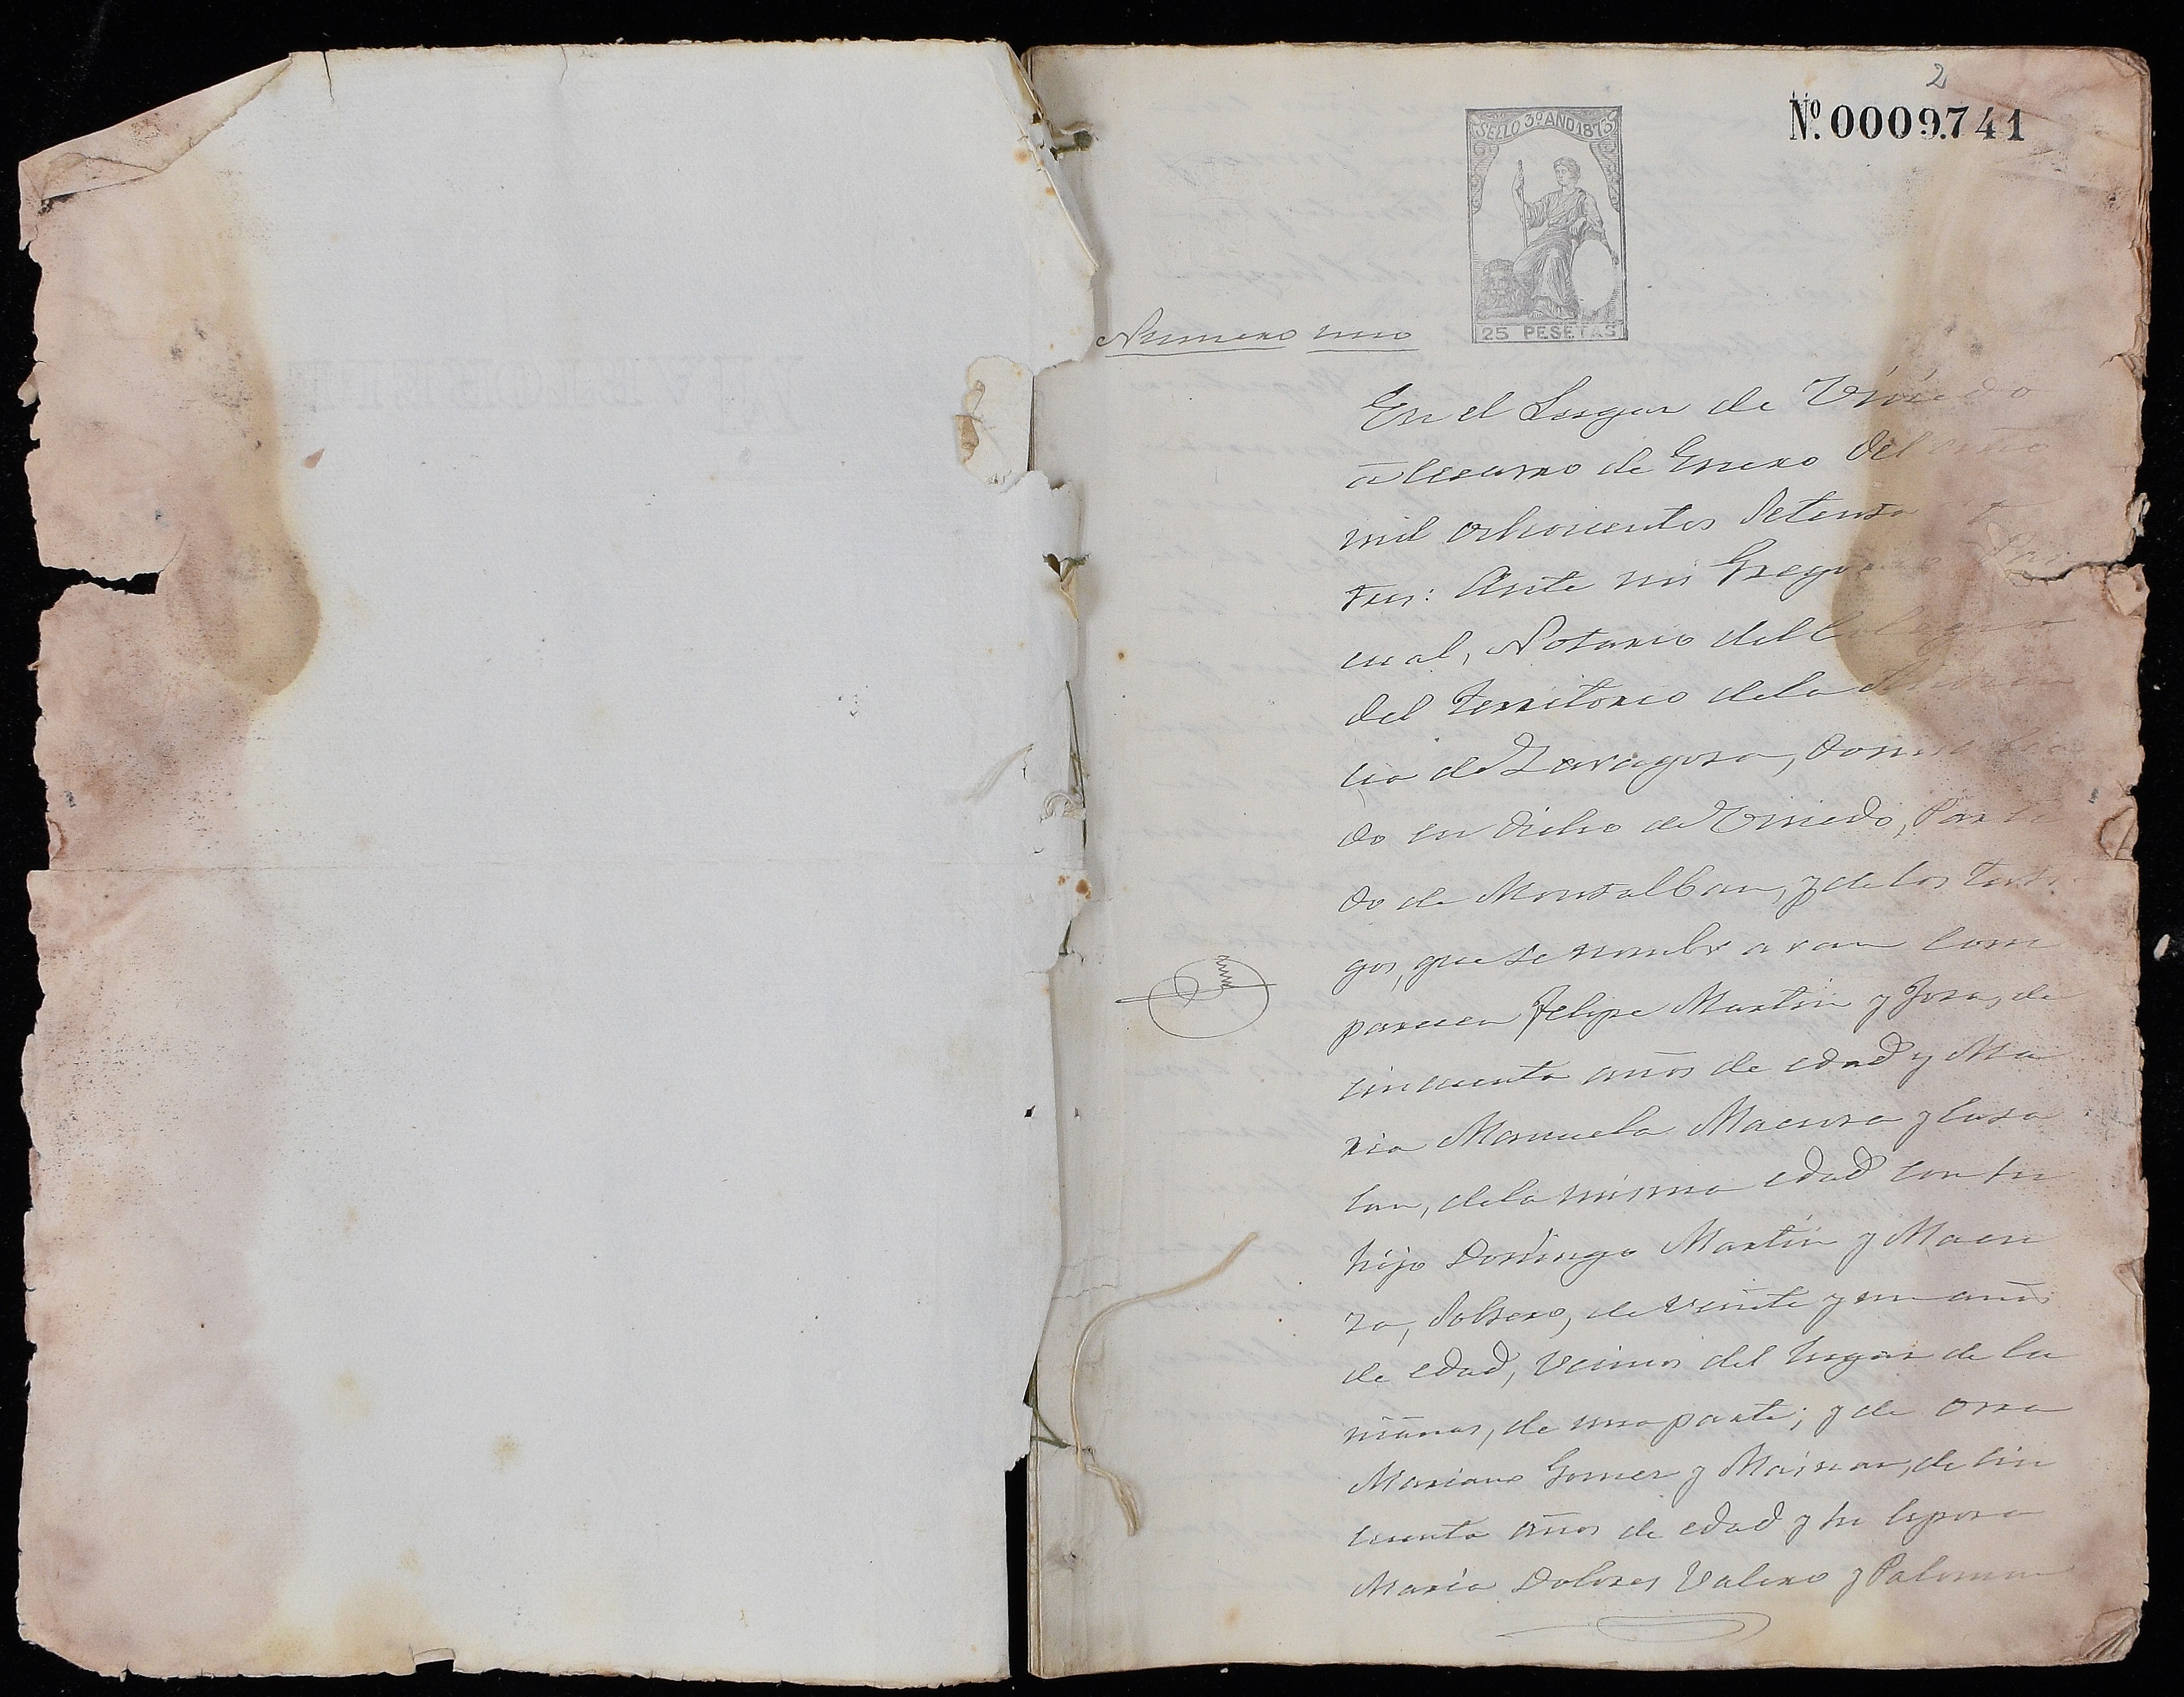 2
Nº. 0009.741
SELLO 3º AÑO 1873
25 PESETAS
Numero uno
En el Lugar de Vivedo
á de Enero del año
mil ochocientos setenta y
tres: Ante mi Gregorio
cual, Notario del Colegio
del Territorio dela Audien
cia de Zaragoza, domicilia
do en dicho de Vinedo, Parti
do de Montalban, y de los testi
gos, que se nombraran com
parecen Felipe Martin y Josa, de
cincuenta años de edad y Ma
ria Manuela Maenza y Casa
lan, dela misma edad con su
hijo Domingo Martin y Maen
za, Soltero, de veinte y un años
de edad, vecinos del lugar de Lu
de una parte; y de otra
Mariano Gomez y Mainar, de cin
cuenta años de edad y su esposa
Maria Dolores Valero y Palomar